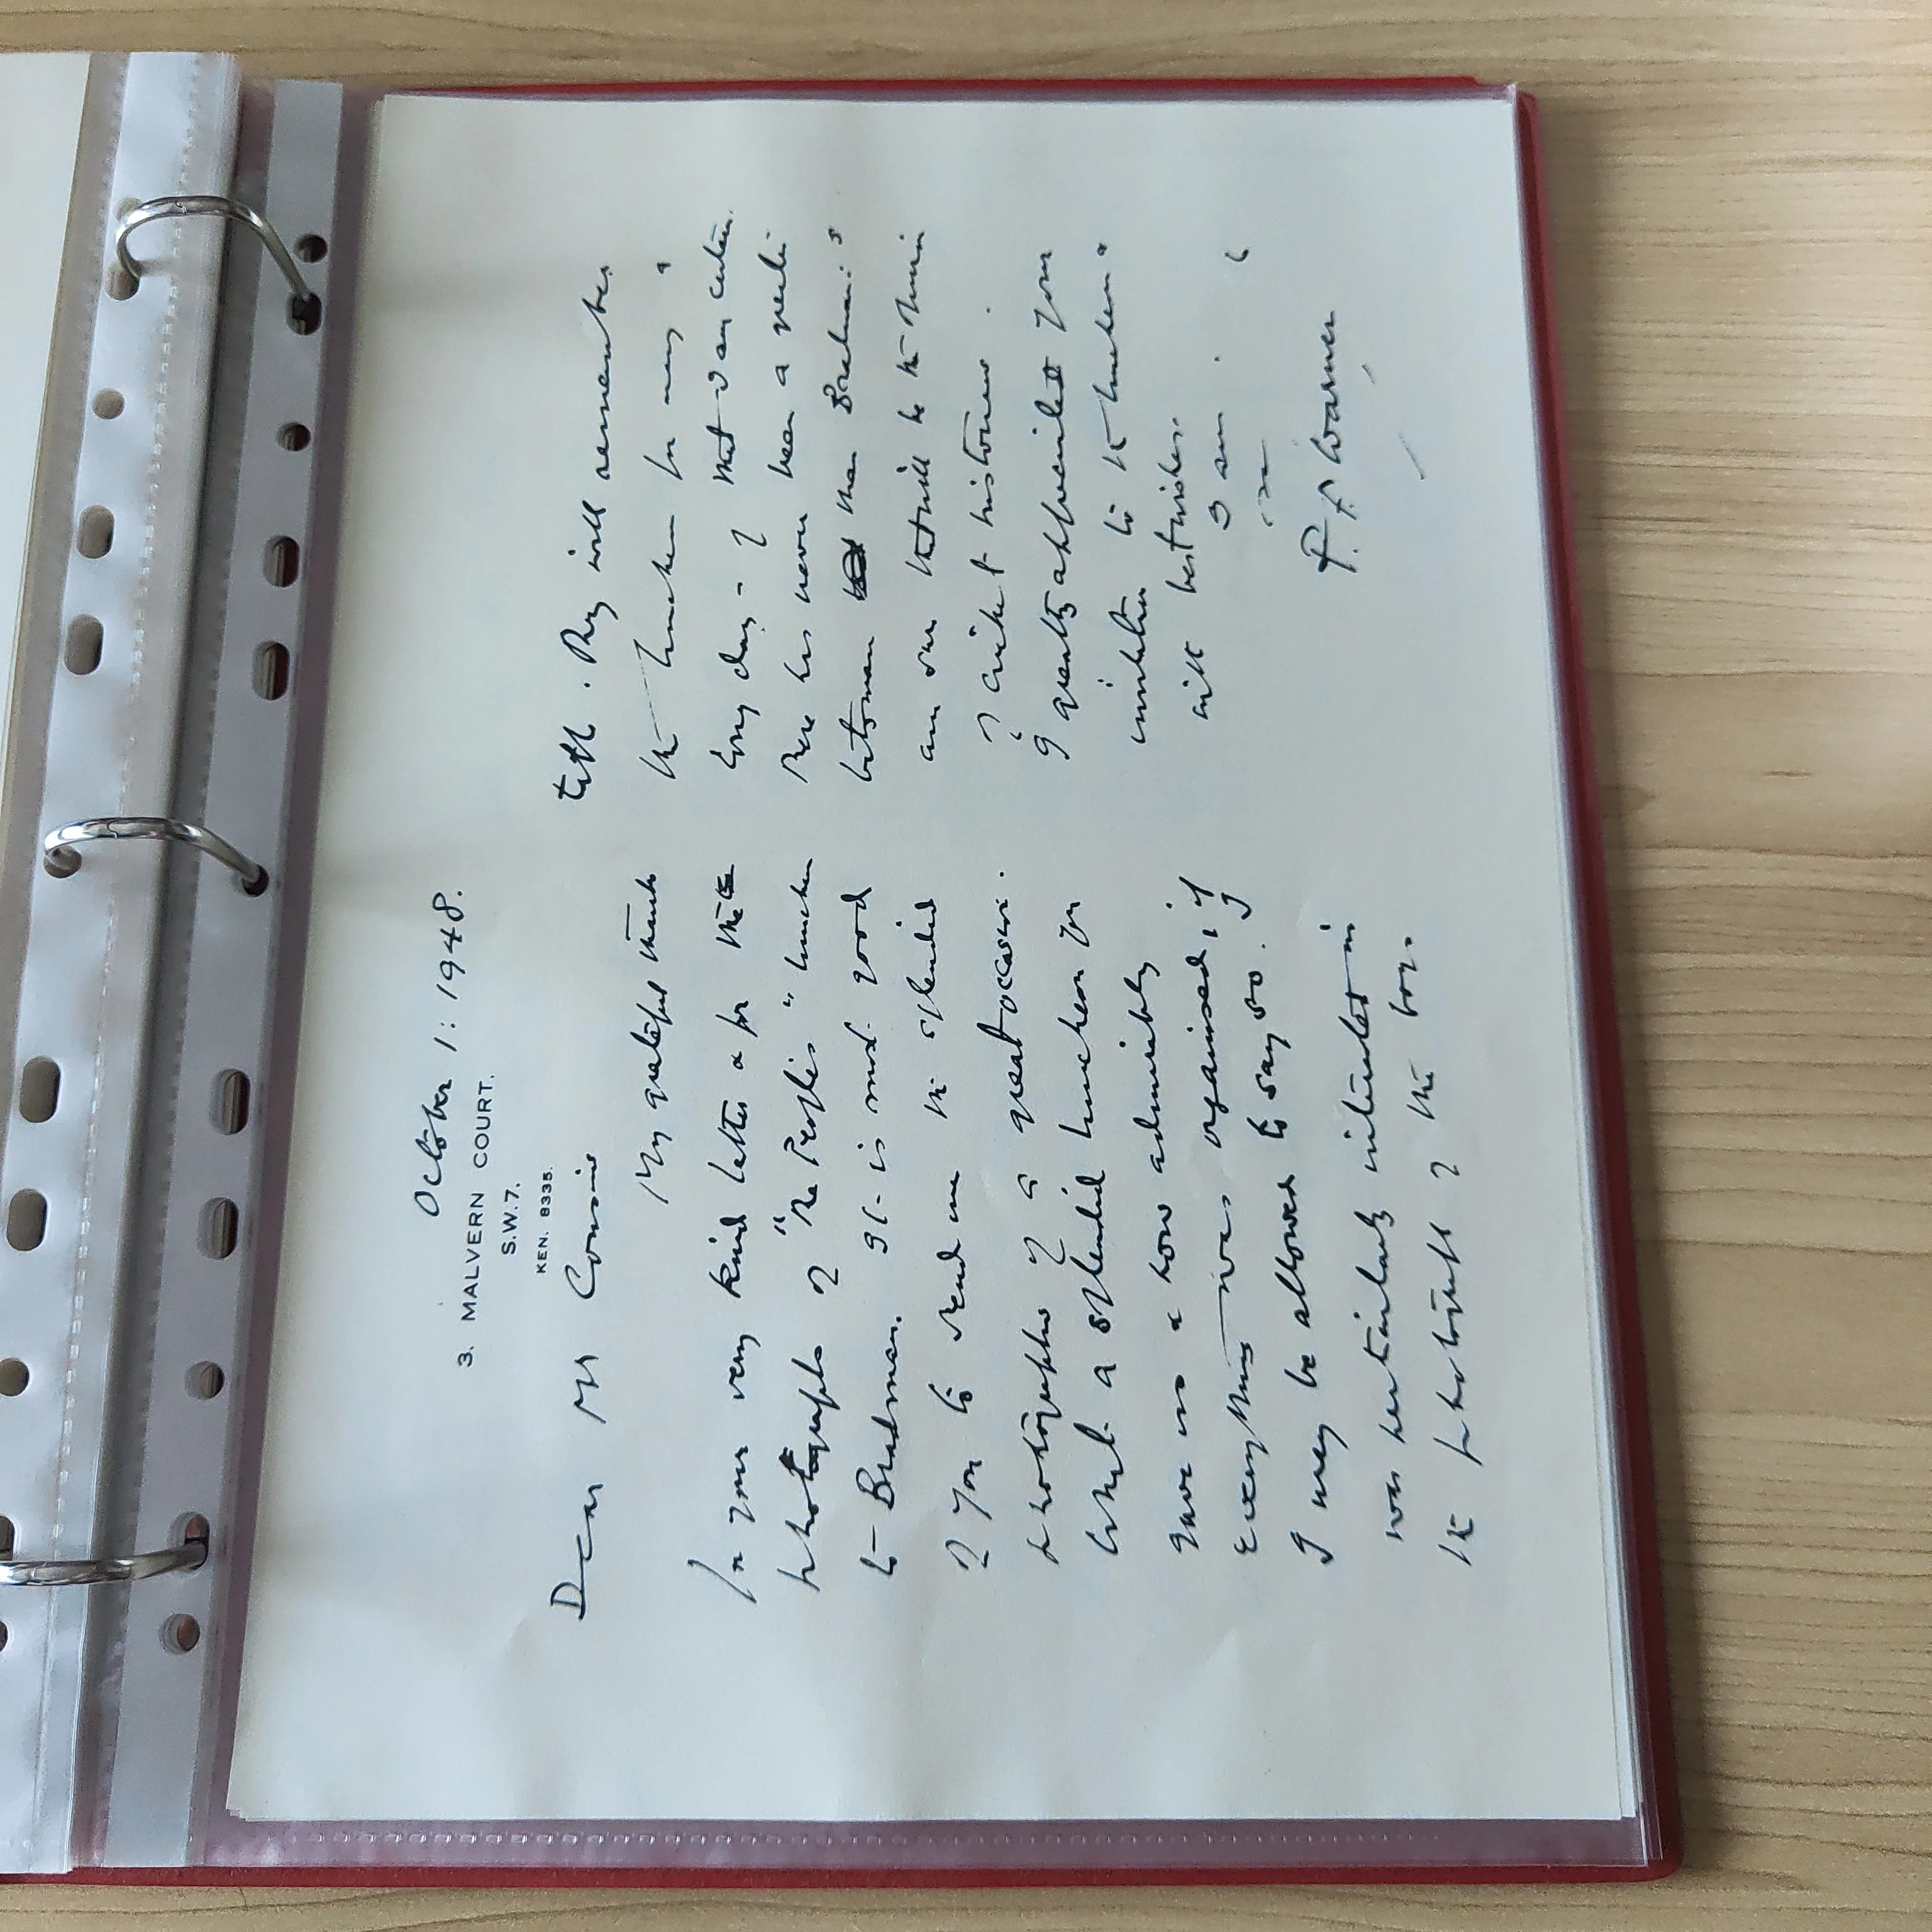 October 1: 1948.
3. MALVERN COURT.
S.W.7.
KEN. 8335.
Dear Mr Cousins
My grateful thanks
for your very kind letter & for the
photographs of "The People's" luncheon
to Bradman. It is most good
of you to send me the splendid
photographs of a great occasion.
What a splendid luncheon you
gave us & how admirably
everything was organised, if
I may be allowed to say so. I
was particularly interested in
the photograph of the boys.
They will remember
the luncheon for many a
long day - & that I am certain.
There has never been a greater
batsman than Bradman: I
am sure that will be the view
of cricket historians.
I greatly appreciated your
invitation to the luncheon.
with best wishes.
I am.
P. F. Warner